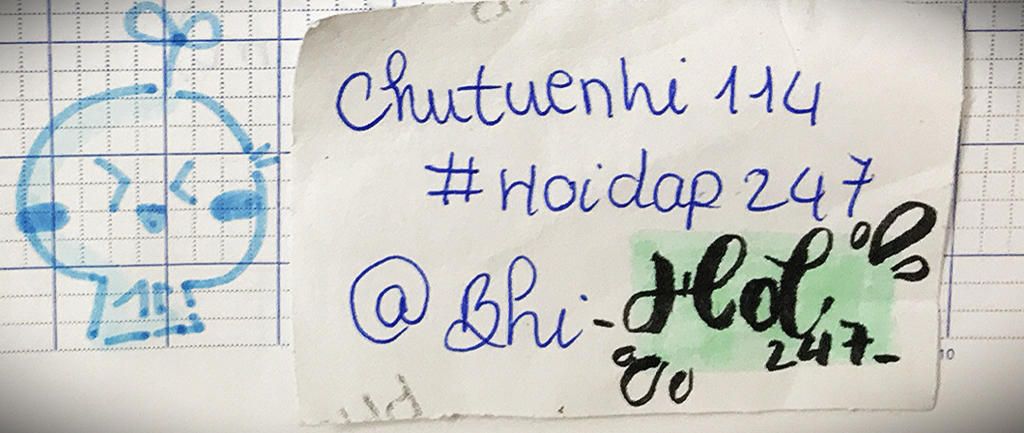 Chutuenhi 114
#Hoidap 247
@Bhi-Hdl
247-
10